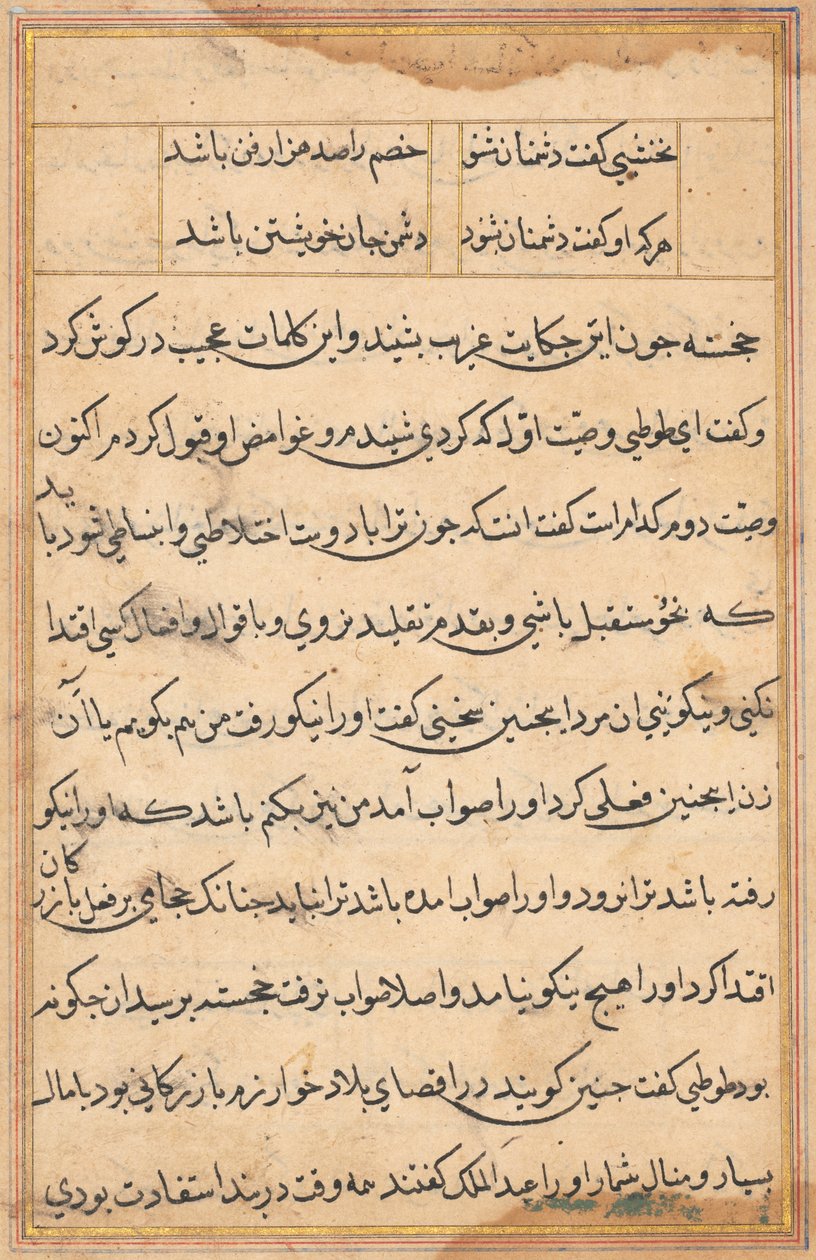 نخشبي كفت دشمنان مشنو خصم را صد هزار فن باشد
هركه او كفت دشمنان شنود دشمن جان خويشتن باشد
خجسته جون اين حكايت غريب بشنيد واين كلمات عجيب در كوش كرد
و كفت اي طوطي وصيّت اوّل كه كردي شنيدم و غوامض او قبول كردم اكنون
وصيّت دوم كدام است كفت انست كه جون ترا با دوست اختلاطي وانبساطي شود بايد
كه بخود مستقبل باشي و بقدم تقليد نروي و با قوال وافعال كسي اقتدا
نكني و بنكو نبيني ان مرد اينجنين سخني كفت او را نيكو رفت من هم بكويم يا آن
زن اينجنين فعلي كرد او را صواب آمد من نيز بكنم باشد كه او را نيكو
رفته باشد ترا نرود و او را صواب امده باشد ترا نيايد جنانك حجامي بر فعل بازركان
اقتدا كرد او را هيج نيكو نيامد و اصلا صواب نرفت خجسته برسيد ان جكونه
بود طوطي كفت جنين كويند در اقصاي بلاد خوارزم بازركاني بود با مال
بسيار و منال شمار او را عبد الملك كفتند همه وقت در بند استفادت بودي